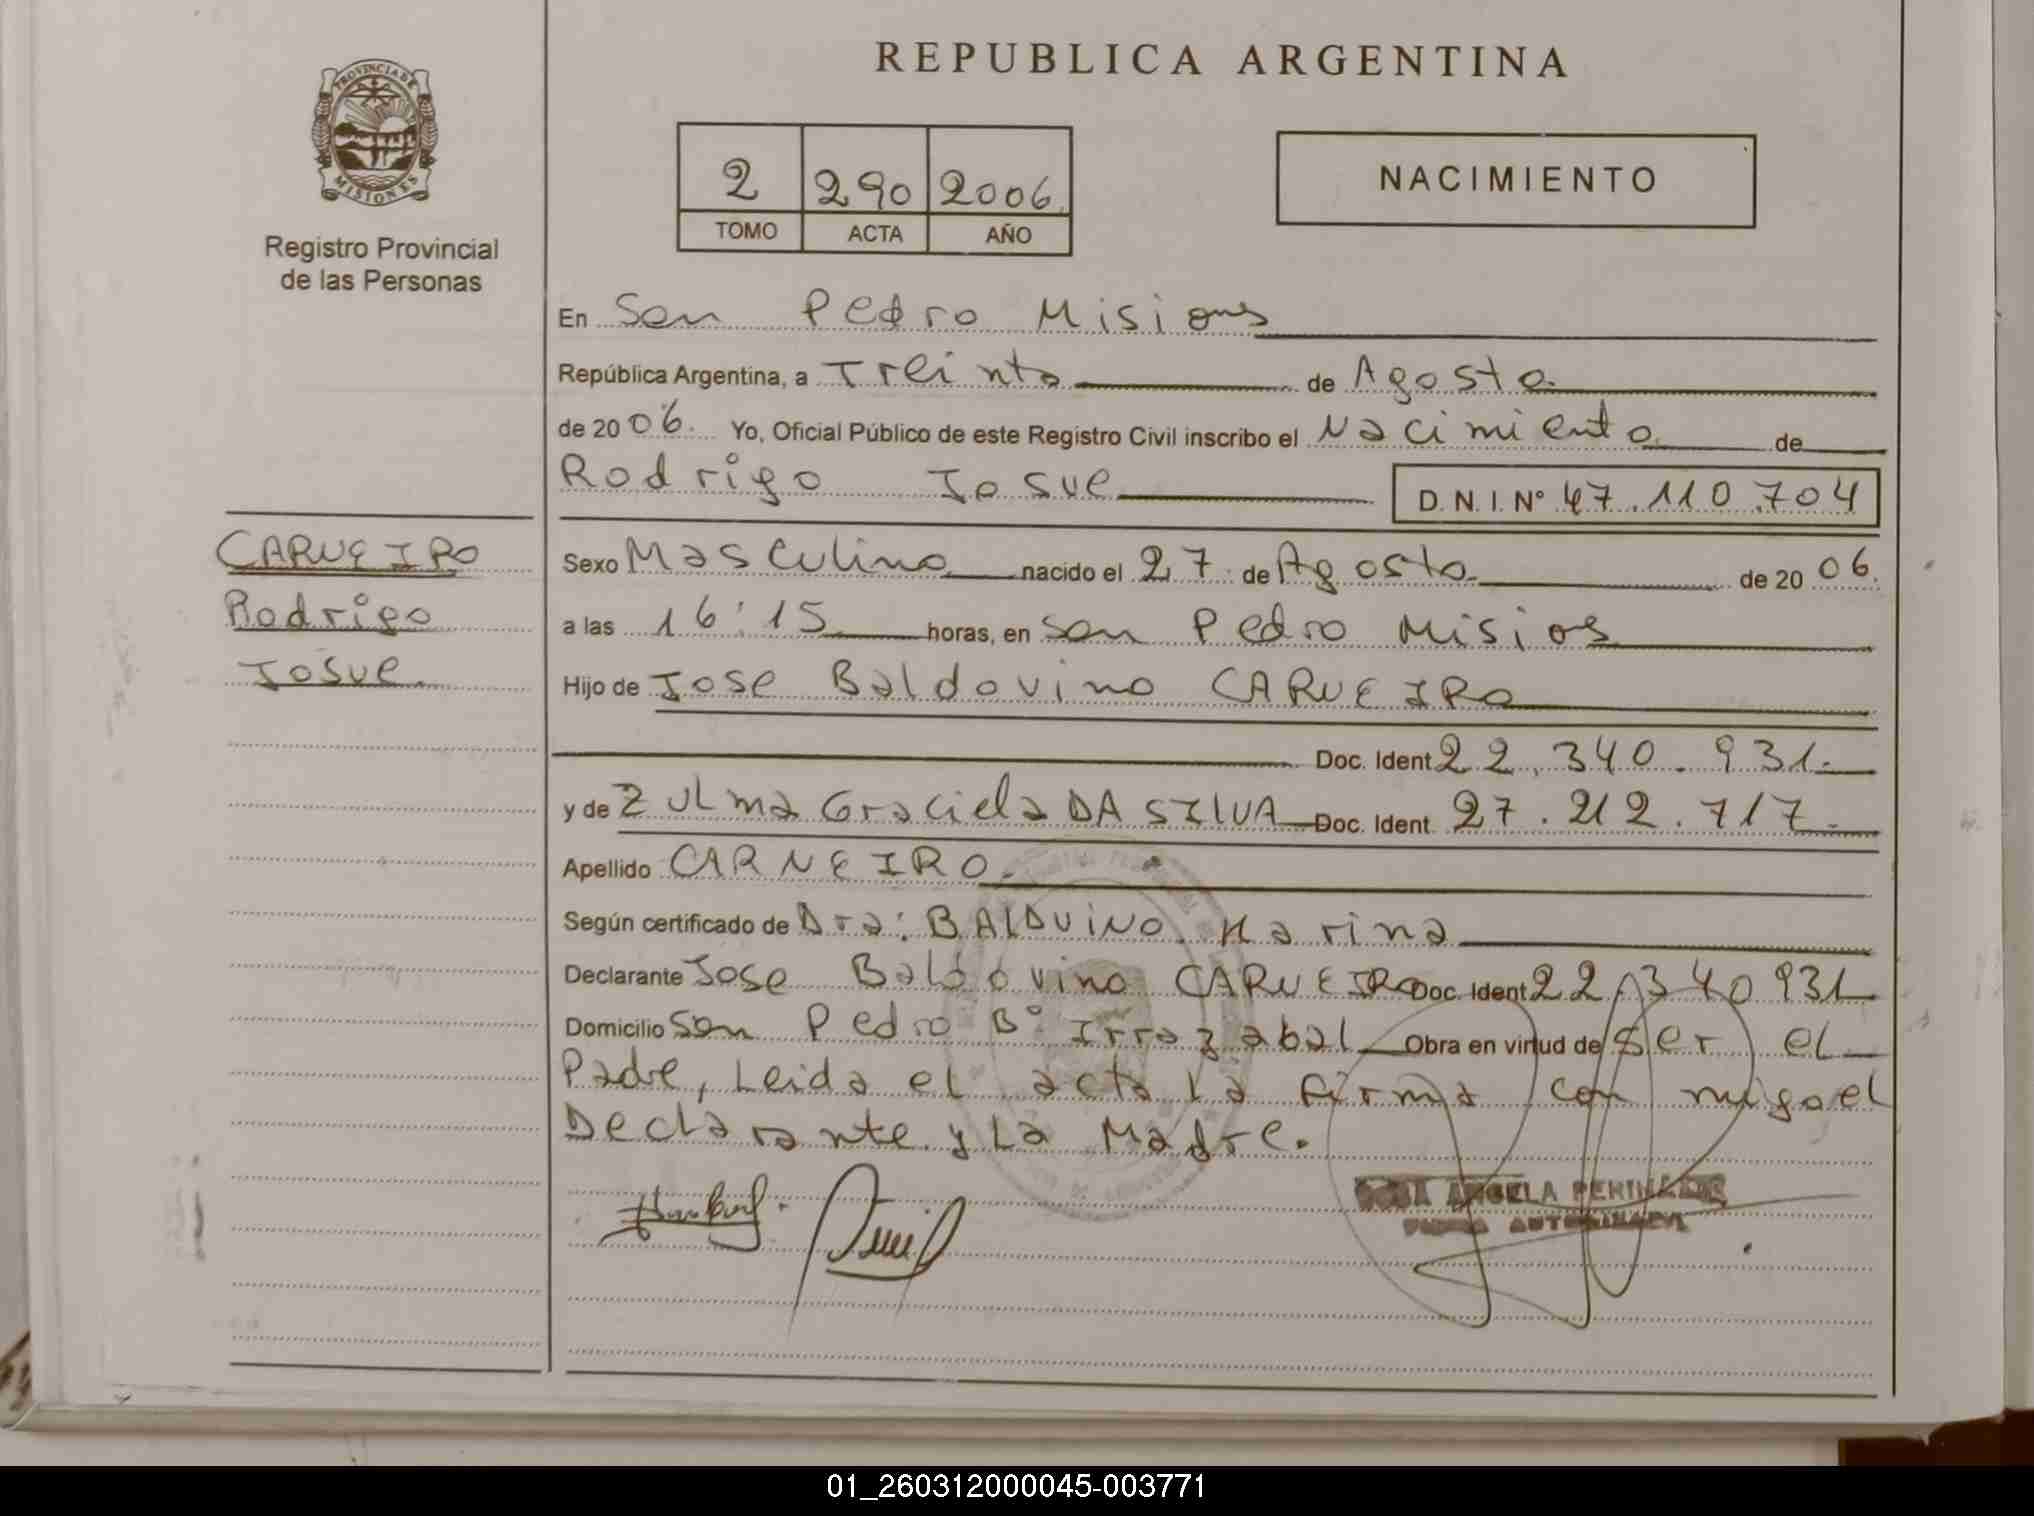 REPUBLICA ARGENTINA
PROVINCIA DE
MISIONES
Registro Provincial
de las Personas
2 290 2006.
TOMO ACTA AÑO
NACIMIENTO
En San Pedro Misiones
República Argentina, a Treinta de Agosto.
de 2006. Yo, Oficial Público de este Registro Civil inscribo el Nacimiento de
Rodrigo Josue D. N. I. Nº 47.110.704
CARNEIRO
Rodrigo
Josue.
Sexo Masculino nacido el 27 de Agosto. de 2006.
a las 16:15 horas, en San Pedro Misios
Hijo de Jose Baldovino CARNEIRO
Doc. Ident 22.340.931.
y de Zulma Graciela DA SILVA Doc. Ident. 27.212.717.
Apellido CARNEIRO.
Según certificado de Dra: BALDUINO. Karina
Declarante Jose Baldovino CARNEIRO Doc. Ident 22.340931
Domicilio San Pedro Bº Irrazabal Obra en virtud de Ser el
Padre, Leida el acta La firma con migo el
Declarante y La Madre.
ANGELA
01_260312000045-003771